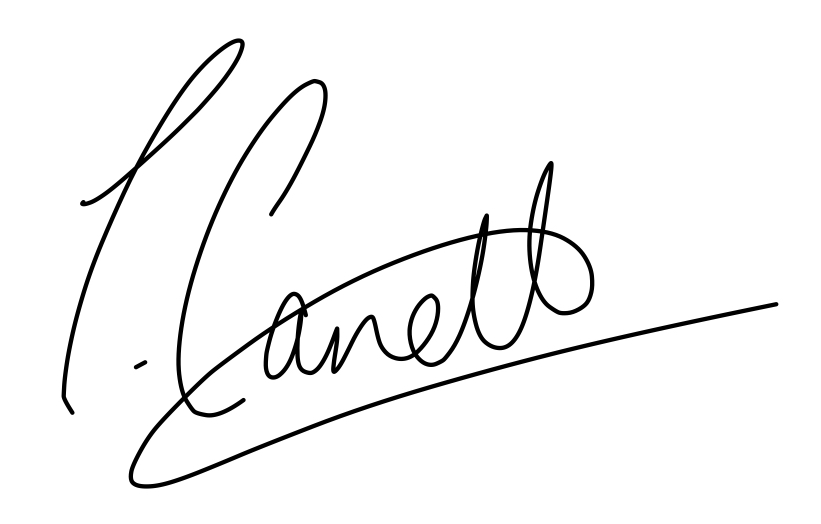 T. Canett